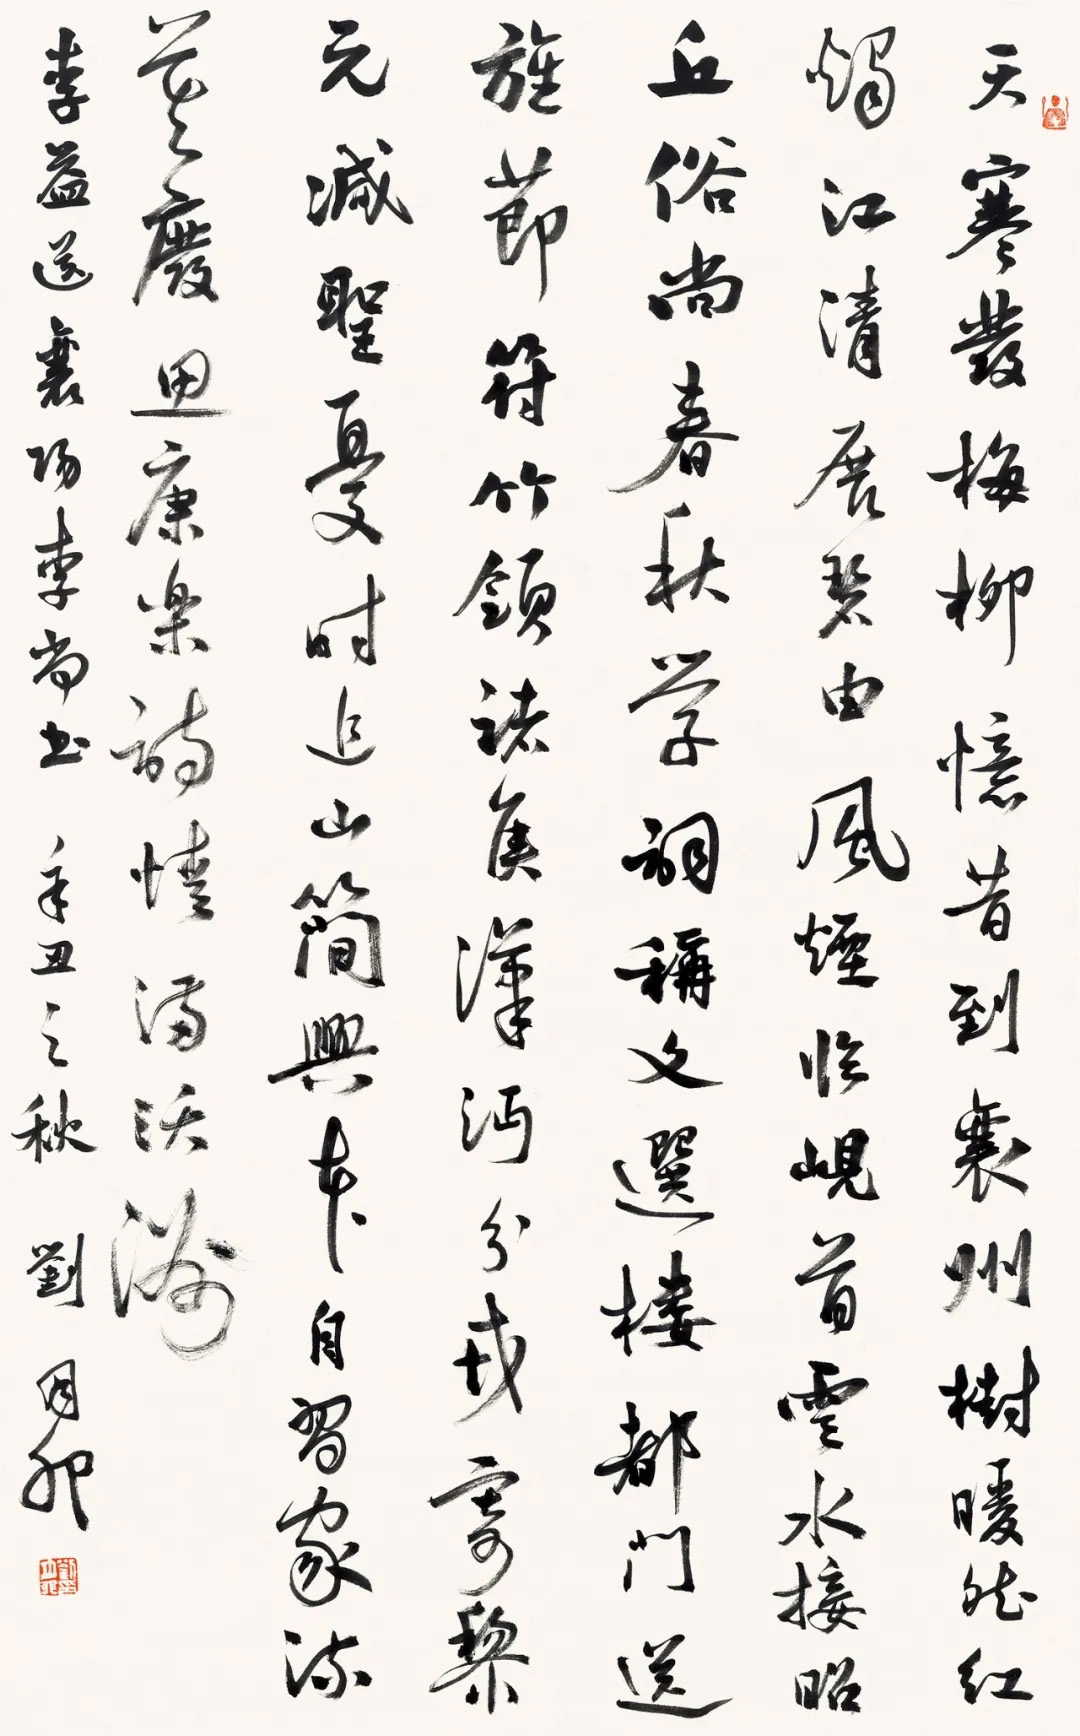 天寒發梅柳憶昔到襄州樹暖然紅
燭江清展碧由風煙臨峴首雲水接昭
丘俗尚春秋学詞稱文選樓都門送
旌節符竹領諸侯漢沔分戎寄黎
元減聖憂時追山簡興本自習家流
莫廢思康樂詩情滿沃洲
李益送襄阳李尚书 辛丑之秋 劉月卯